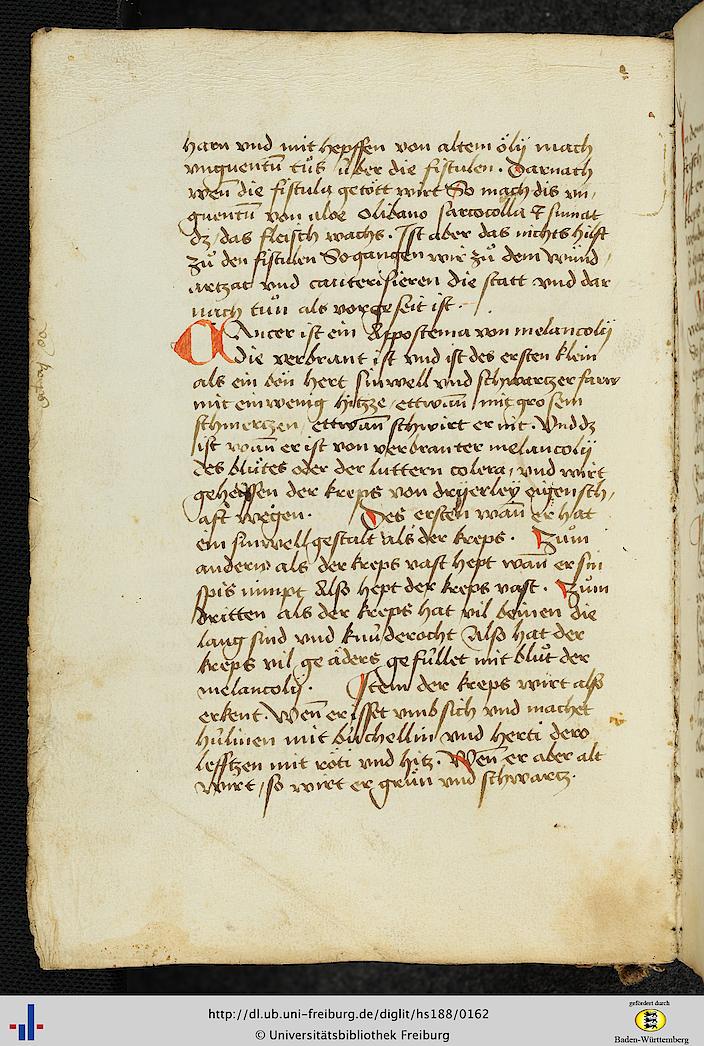 harn vnd mit hepffen von altem ölÿ mach
vnguentū tůs über die fistulen. Darnach
wen̄ die fistula getött wirt So mach dis vn,
guentū von aloe olibano sarcocolla & sumat
dz das fleisch wachs. Ist aber das nichts hilft
zů den fistulen So gangen wir zů dem wund,
artzat vnd cauterisieren die statt vnd dar
nach tůn als vorgeseit ist.
CAncer ist ein Appostema von melancolÿ
die verbrant ist vnd ist des ersten klein
als ein bon hert sinwell vnd schwartzer farw
mit ein wenig hitzze ettwan̄ mit grosem
schmertzen ettwan̄ schwirt er nit Vnd dz
ist wan̄ er ist von verbranter melancolÿ
des blůtes oder der luttern colera, vnd wirt
geheissen der kreps von drÿerleÿ eigensch,
aft wegen. Des ersten wan̄ er hat
ein sinwell gestalt als der kreps. Zům
andern als der kreps vast hept wan̄ er sin
spis nimpt Also hept der kreps vast. Zům
dritten als der kreps hat vil beinen die
lang sind vnd knüderocht Also hat der
kreps vil geäders gefüllet mit blůt der
melancolÿ. Item der kreps wirt also
erkent. Wen̄ er isset vmb sich vnd machet
hülinen mit büchellin vnd herti dero
lefftzen mit röti vnd hitz. Wen̄ er aber alt
wirt, so wirt er grün vnd schwartz.
http://dl.ub.uni-freiburg.de/diglit/hs188/0162
© Universitätsbibliothek Freiburg
gefördert durch
Baden-Württemberg